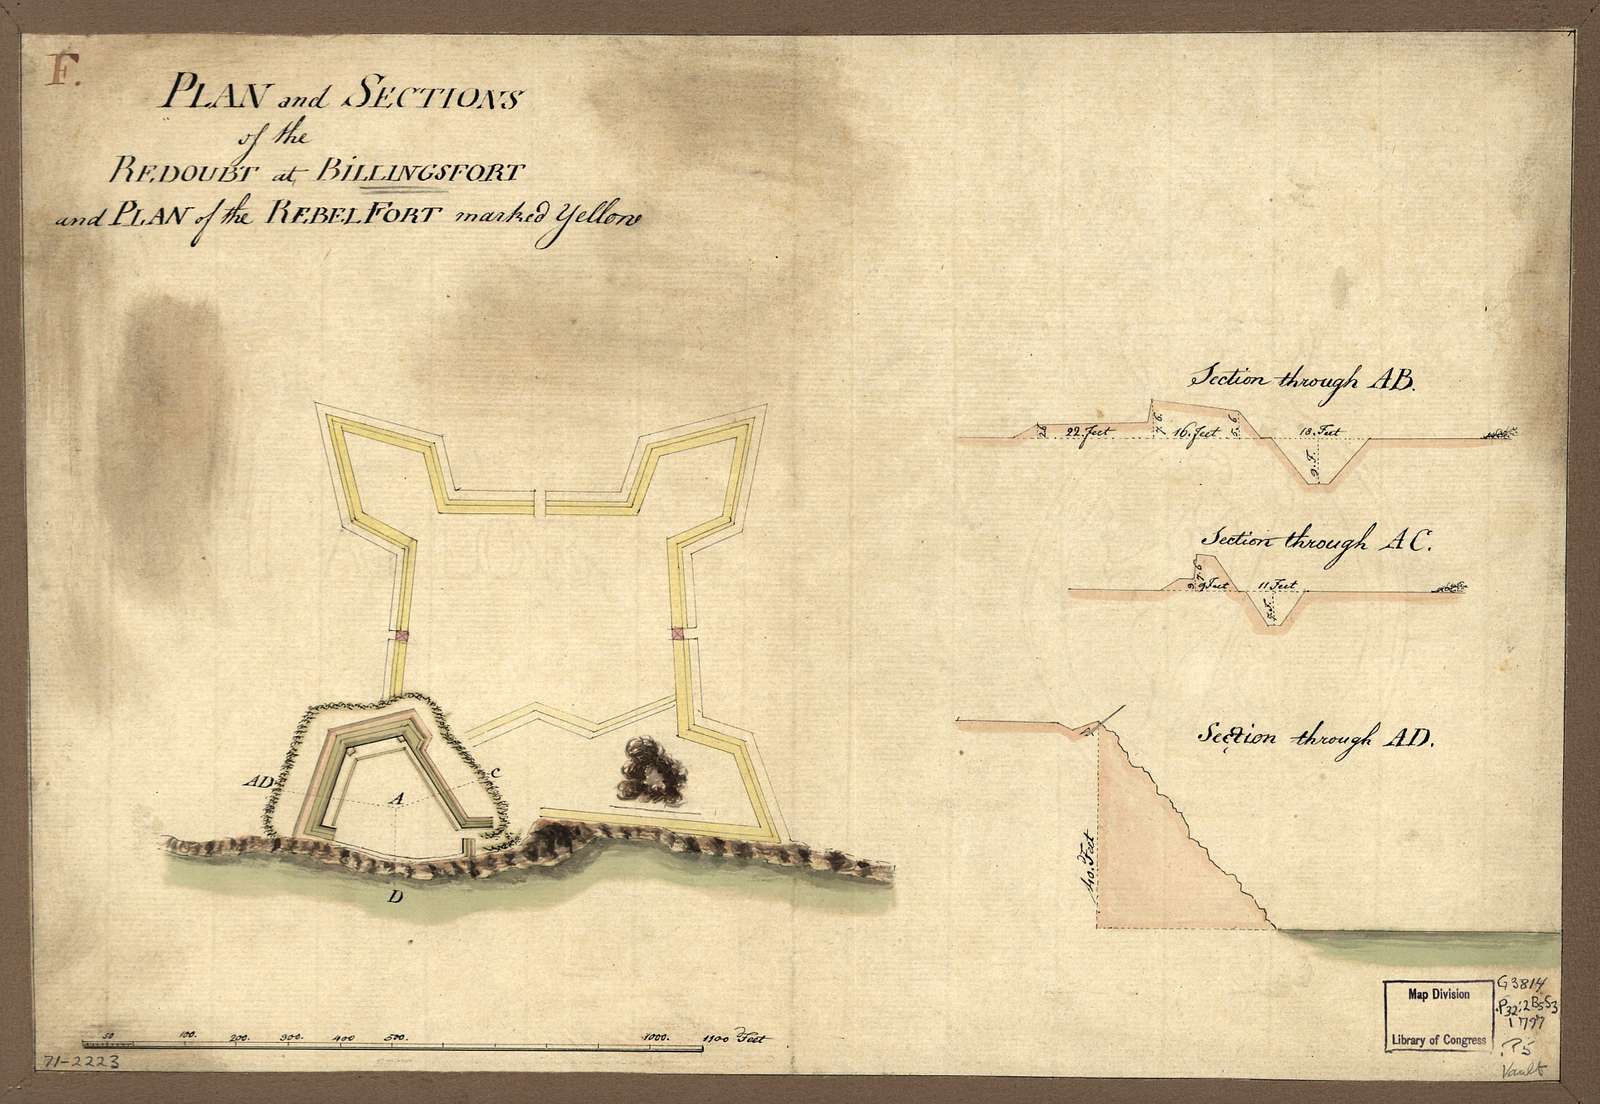 F.
PLAN and SECTIONS
of the
REDOUBT at BILLINGSFORT
and PLAN of the REBEL FORT marked Yellow
Section through AB.
22 feet
7.6.
16. feet
5.6.
18. Feet
9. F.
Section through AC.
7.6
9 Feet
11 Feet
7 F.
Section through AD.
40. Feet
AD
A
C
D
50
100.
200.
300.
400
500.
1000.
1100 Feet
71-2223
Map Division
Library of Congress
G3814
.P32:2B5S3
1777
.P5
Vault